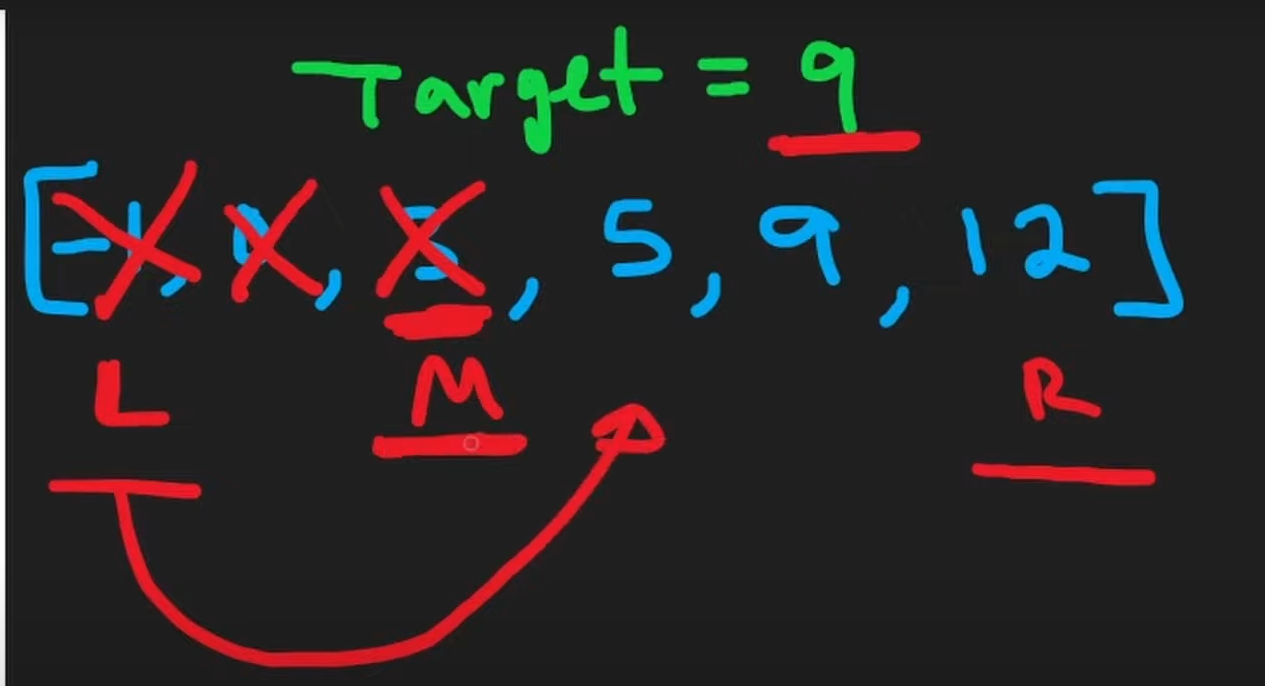 Target = 9
[-1, 0, 3, 5, 9, 12]
L M R